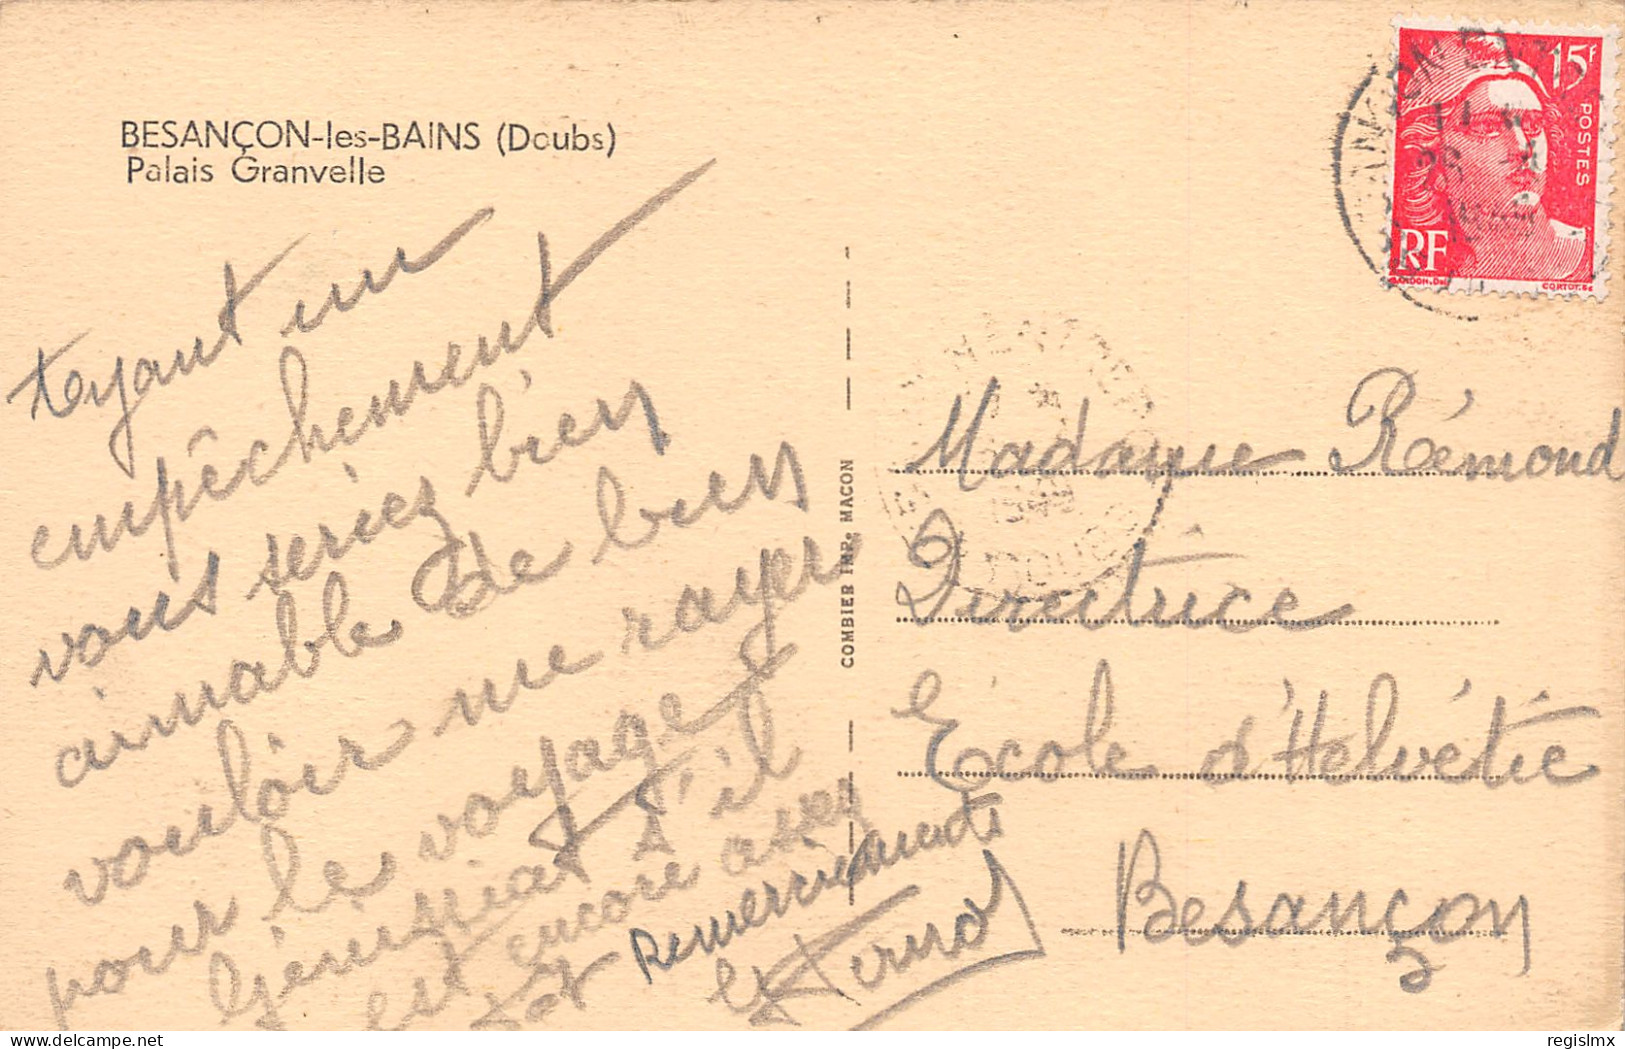 BESANÇON-les-BAINS (Doubs)
Palais Granvelle
15F
POSTES
RF
GANDON.Del
CORTOT.Sc
COMBIER IMP. MACON
Ayant un
empêchement
vous seriez bien
aimable de bien
vouloir me rayer
pour le voyage
Génissiat s'il
est encore assez
tôt Remerciements
Madame Rémond
Directrice
École d'Helvétie
Besançon
regislmx